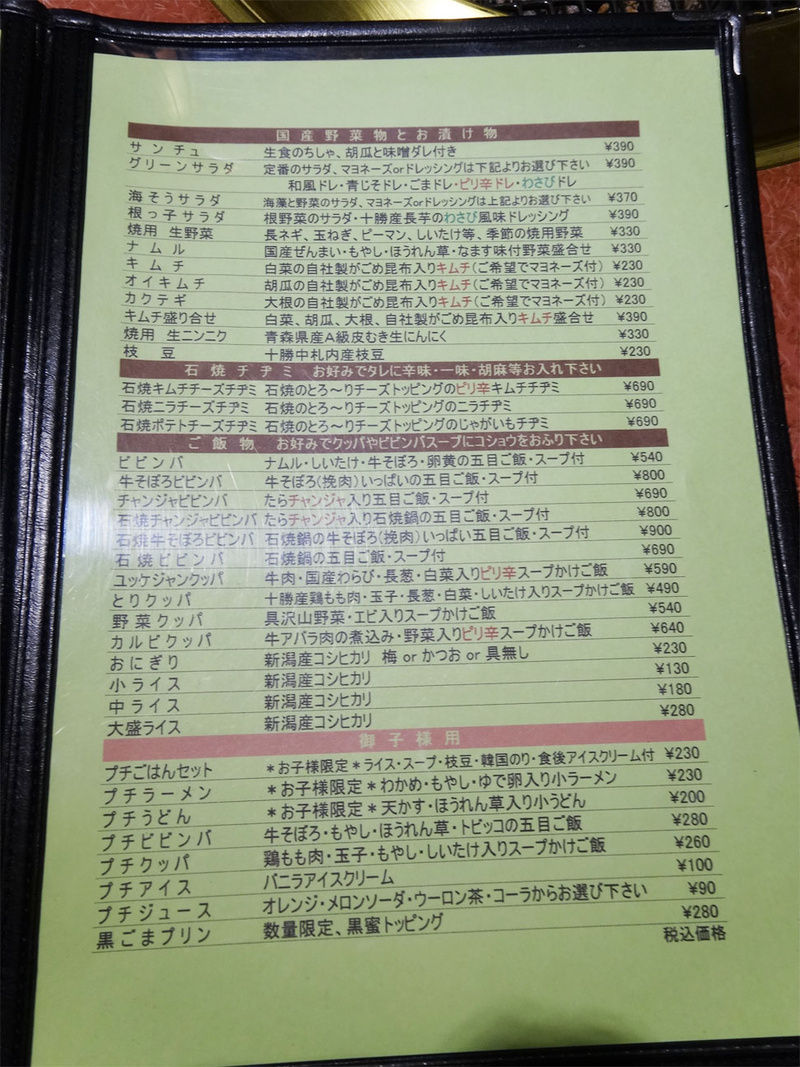 国産野菜物とお漬け物
サンチュ 生食のちしゃ、胡瓜と味噌ダレ付き ¥390
グリーンサラダ 定番のサラダ、マヨネーズorドレッシングは下記よりお選び下さい ¥390
和風ドレ・青じそドレ・ごまドレ・ピリ辛ドレ・わさびドレ
海そうサラダ 海藻と野菜のサラダ、マヨネーズorドレッシングは上記よりお選び下さい ¥370
根っ子サラダ 根野菜のサラダ・十勝産長芋のわさび風味ドレッシング ¥390
焼用 生野菜 長ネギ、玉ねぎ、ピーマン、しいたけ等、季節の焼用野菜 ¥330
ナムル 国産ぜんまい・もやし・ほうれん草・なます味付野菜盛合せ ¥330
キムチ 白菜の自社製がごめ昆布入りキムチ(ご希望でマヨネーズ付) ¥230
オイキムチ 胡瓜の自社製がごめ昆布入りキムチ(ご希望でマヨネーズ付) ¥230
カクテギ 大根の自社製がごめ昆布入りキムチ(ご希望でマヨネーズ付) ¥230
キムチ盛り合せ 白菜、胡瓜、大根、自社製がごめ昆布入りキムチ盛合せ ¥390
焼用 生ニンニク 青森県産A級皮むき生にんにく ¥330
枝豆 十勝中札内産枝豆 ¥230
石焼チヂミ お好みでタレに辛味・一味・胡麻等お入れ下さい
石焼キムチチーズチヂミ 石焼のとろ～りチーズトッピングのピリ辛キムチチヂミ ¥690
石焼ニラチーズチヂミ 石焼のとろ～りチーズトッピングのニラチヂミ ¥690
石焼ポテトチーズチヂミ 石焼のとろ～りチーズトッピングのじゃがいもチヂミ ¥690
ご飯物 お好みでクッパやビビンバスープにコショウをおふり下さい
ビビンバ ナムル・しいたけ・牛そぼろ・卵黄の五目ご飯・スープ付 ¥540
牛そぼろビビンバ 牛そぼろ(挽肉)いっぱいの五目ご飯・スープ付 ¥800
チャンジャビビンバ たらチャンジャ入り五目ご飯・スープ付 ¥690
石焼チャンジャビビンバ たらチャンジャ入り石焼鍋の五目ご飯・スープ付 ¥800
石焼牛そぼろビビンバ 石焼鍋の牛そぼろ(挽肉)いっぱい五目ご飯・スープ付 ¥900
石焼ビビンバ 石焼鍋の五目ご飯・スープ付 ¥690
ユッケジャンクッパ 牛肉・国産わらび・長葱・白菜入りピリ辛スープかけご飯 ¥590
とりクッパ 十勝産鶏もも肉・玉子・長葱・白菜・しいたけ入りスープかけご飯 ¥490
野菜クッパ 具沢山野菜・エビ入りスープかけご飯 ¥540
カルビクッパ 牛アバラ肉の煮込み・野菜入りピリ辛スープかけご飯 ¥640
おにぎり 新潟産コシヒカリ 梅 or かつお or 具無し ¥230
小ライス 新潟産コシヒカリ ¥130
中ライス 新潟産コシヒカリ ¥180
大盛ライス 新潟産コシヒカリ ¥280
御子様用
プチごはんセット *お子様限定*ライス・スープ・枝豆・韓国のり・食後アイスクリーム付 ¥230
プチラーメン *お子様限定*わかめ・もやし・ゆで卵入り小ラーメン ¥230
プチうどん *お子様限定*天かす・ほうれん草入り小うどん ¥200
プチビビンバ 牛そぼろ・もやし・ほうれん草・トビッコの五目ご飯 ¥280
プチクッパ 鶏もも肉・玉子・もやし・しいたけ入りスープかけご飯 ¥260
プチアイス バニラアイスクリーム ¥100
プチジュース オレンジ・メロンソーダ・ウーロン茶・コーラからお選び下さい ¥90
黒ごまプリン 数量限定、黒蜜トッピング ¥280
税込価格